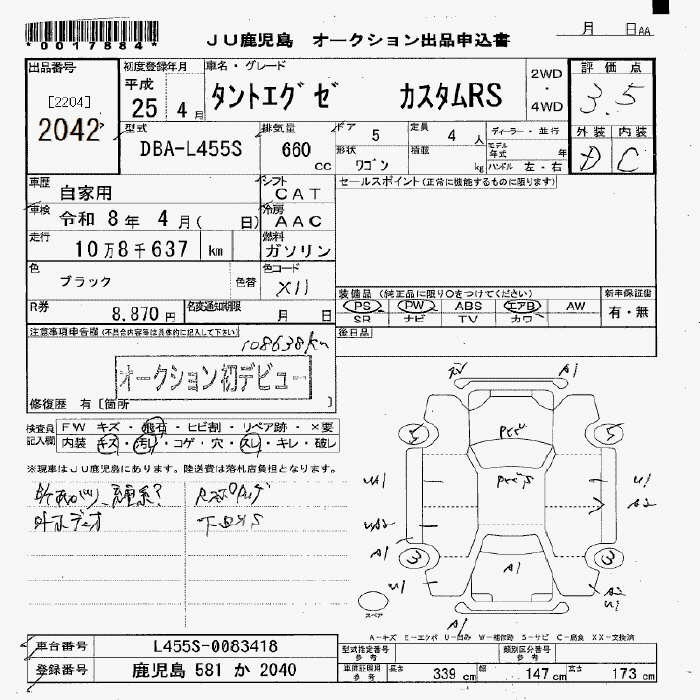 *0017884*
JU鹿児島 オークション出品申込書
月 日AA
出品番号
[2204]
2042
初度登録年月
平成
25 4 月
車名・グレード
タントエグゼ カスタムRS
2WD
・
4WD
評価点
3.5
外装 内装
D C
型式
DBA-L455S
排気量
660
cc
ドア 5
定員 4 人
形状 ワゴン
積載 kg
ディーラー・並行
モデル年式 年
ハンドル 左・右
車歴
自家用
シフト
CAT
セールスポイント(正常に機能するものに限ります)
車検
令和 8 年 4 月( 日)
冷房
AAC
走行
10万8千637 km
燃料
ガソリン
色
ブラック
色替
色コード
X11
R券
8,870 円
名変通知期限
月 日
装備品(純正品に限り○をつけてください)
PS PW ABS エアB AW
SR ナビ TV カワ
新車保証書
有・無
後日品
注意事項申告欄(不具合内容等は具体的に記入して下さい)
108638km
オークション初デビュー
修復歴 有[箇所 ]
検査員記入欄
FW キズ・飛石・ヒビ割・リペア跡・×要
内装 キズ・汚れ・コゲ・穴・スレ・キレ・破レ
※現車はJU鹿児島にあります。陸送費は落札店負担となります。
A1
5 5
U1
A2
A1
3 3
A1
U1
A2
U1
A1
スペア
A-キズ E-エクボ U-凹み W-補修跡 S-サビ C-腐食 XX-交換済
車台番号
L455S-0083418
登録番号
鹿児島 581 か 2040
型式指定番号
参考
類別区分番号
参考
車検証記載
参考
長さ 339 cm
幅 147 cm
高さ 173 cm